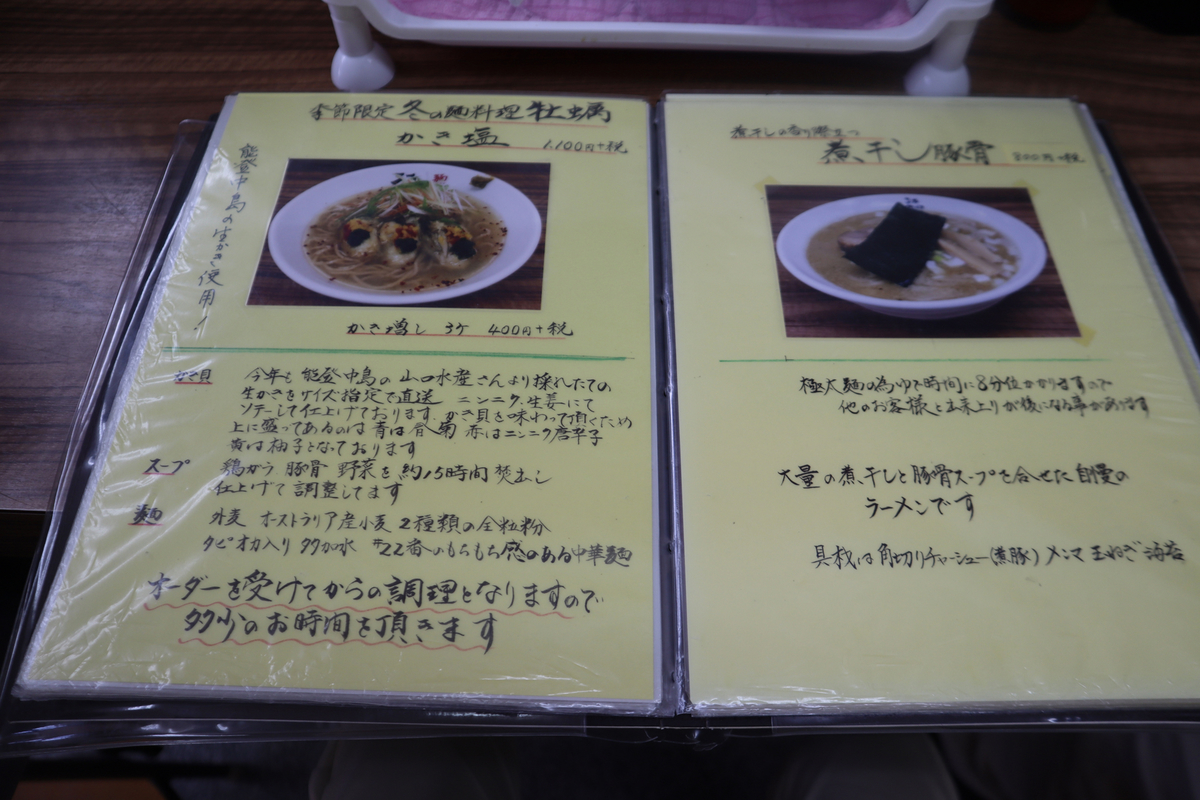 季節限定 冬の麺料理 牡蠣
かき塩 1.100円+税
能登中島の生かき使用!
かき増し 3ケ 400円+税
かき貝 今年も 能登中島の 山口水産さんより採れたての
生かきをサイズ指定で直送 ニンニク、生姜にて
ソテーして仕上げております。かき貝を味わって頂くため
上に盛ってあるのは 青は 春菊 赤はニンニク唐辛子
黄は柚子となっております
スープ 鶏がら 豚骨 野菜を約15時間焚出し
仕上げて調整してます
麺 外麦 オーストラリア産小麦 2種類の全粒粉
タピオカ入り 多加水 #22番のもちもち感のある中華麺
オーダーを受けてからの調理となりますので
多少のお時間を頂きます
煮干しの香り際立つ
煮干し豚骨 800円+税
極太麺の為ゆで時間に8分位かかりますので
他のお客様と出来上りが後になる事があります
大量の煮干しと豚骨スープを合せた自慢の
ラーメンです
具材は角切りチャーシュー(煮豚) メンマ 玉ねぎ 海苔